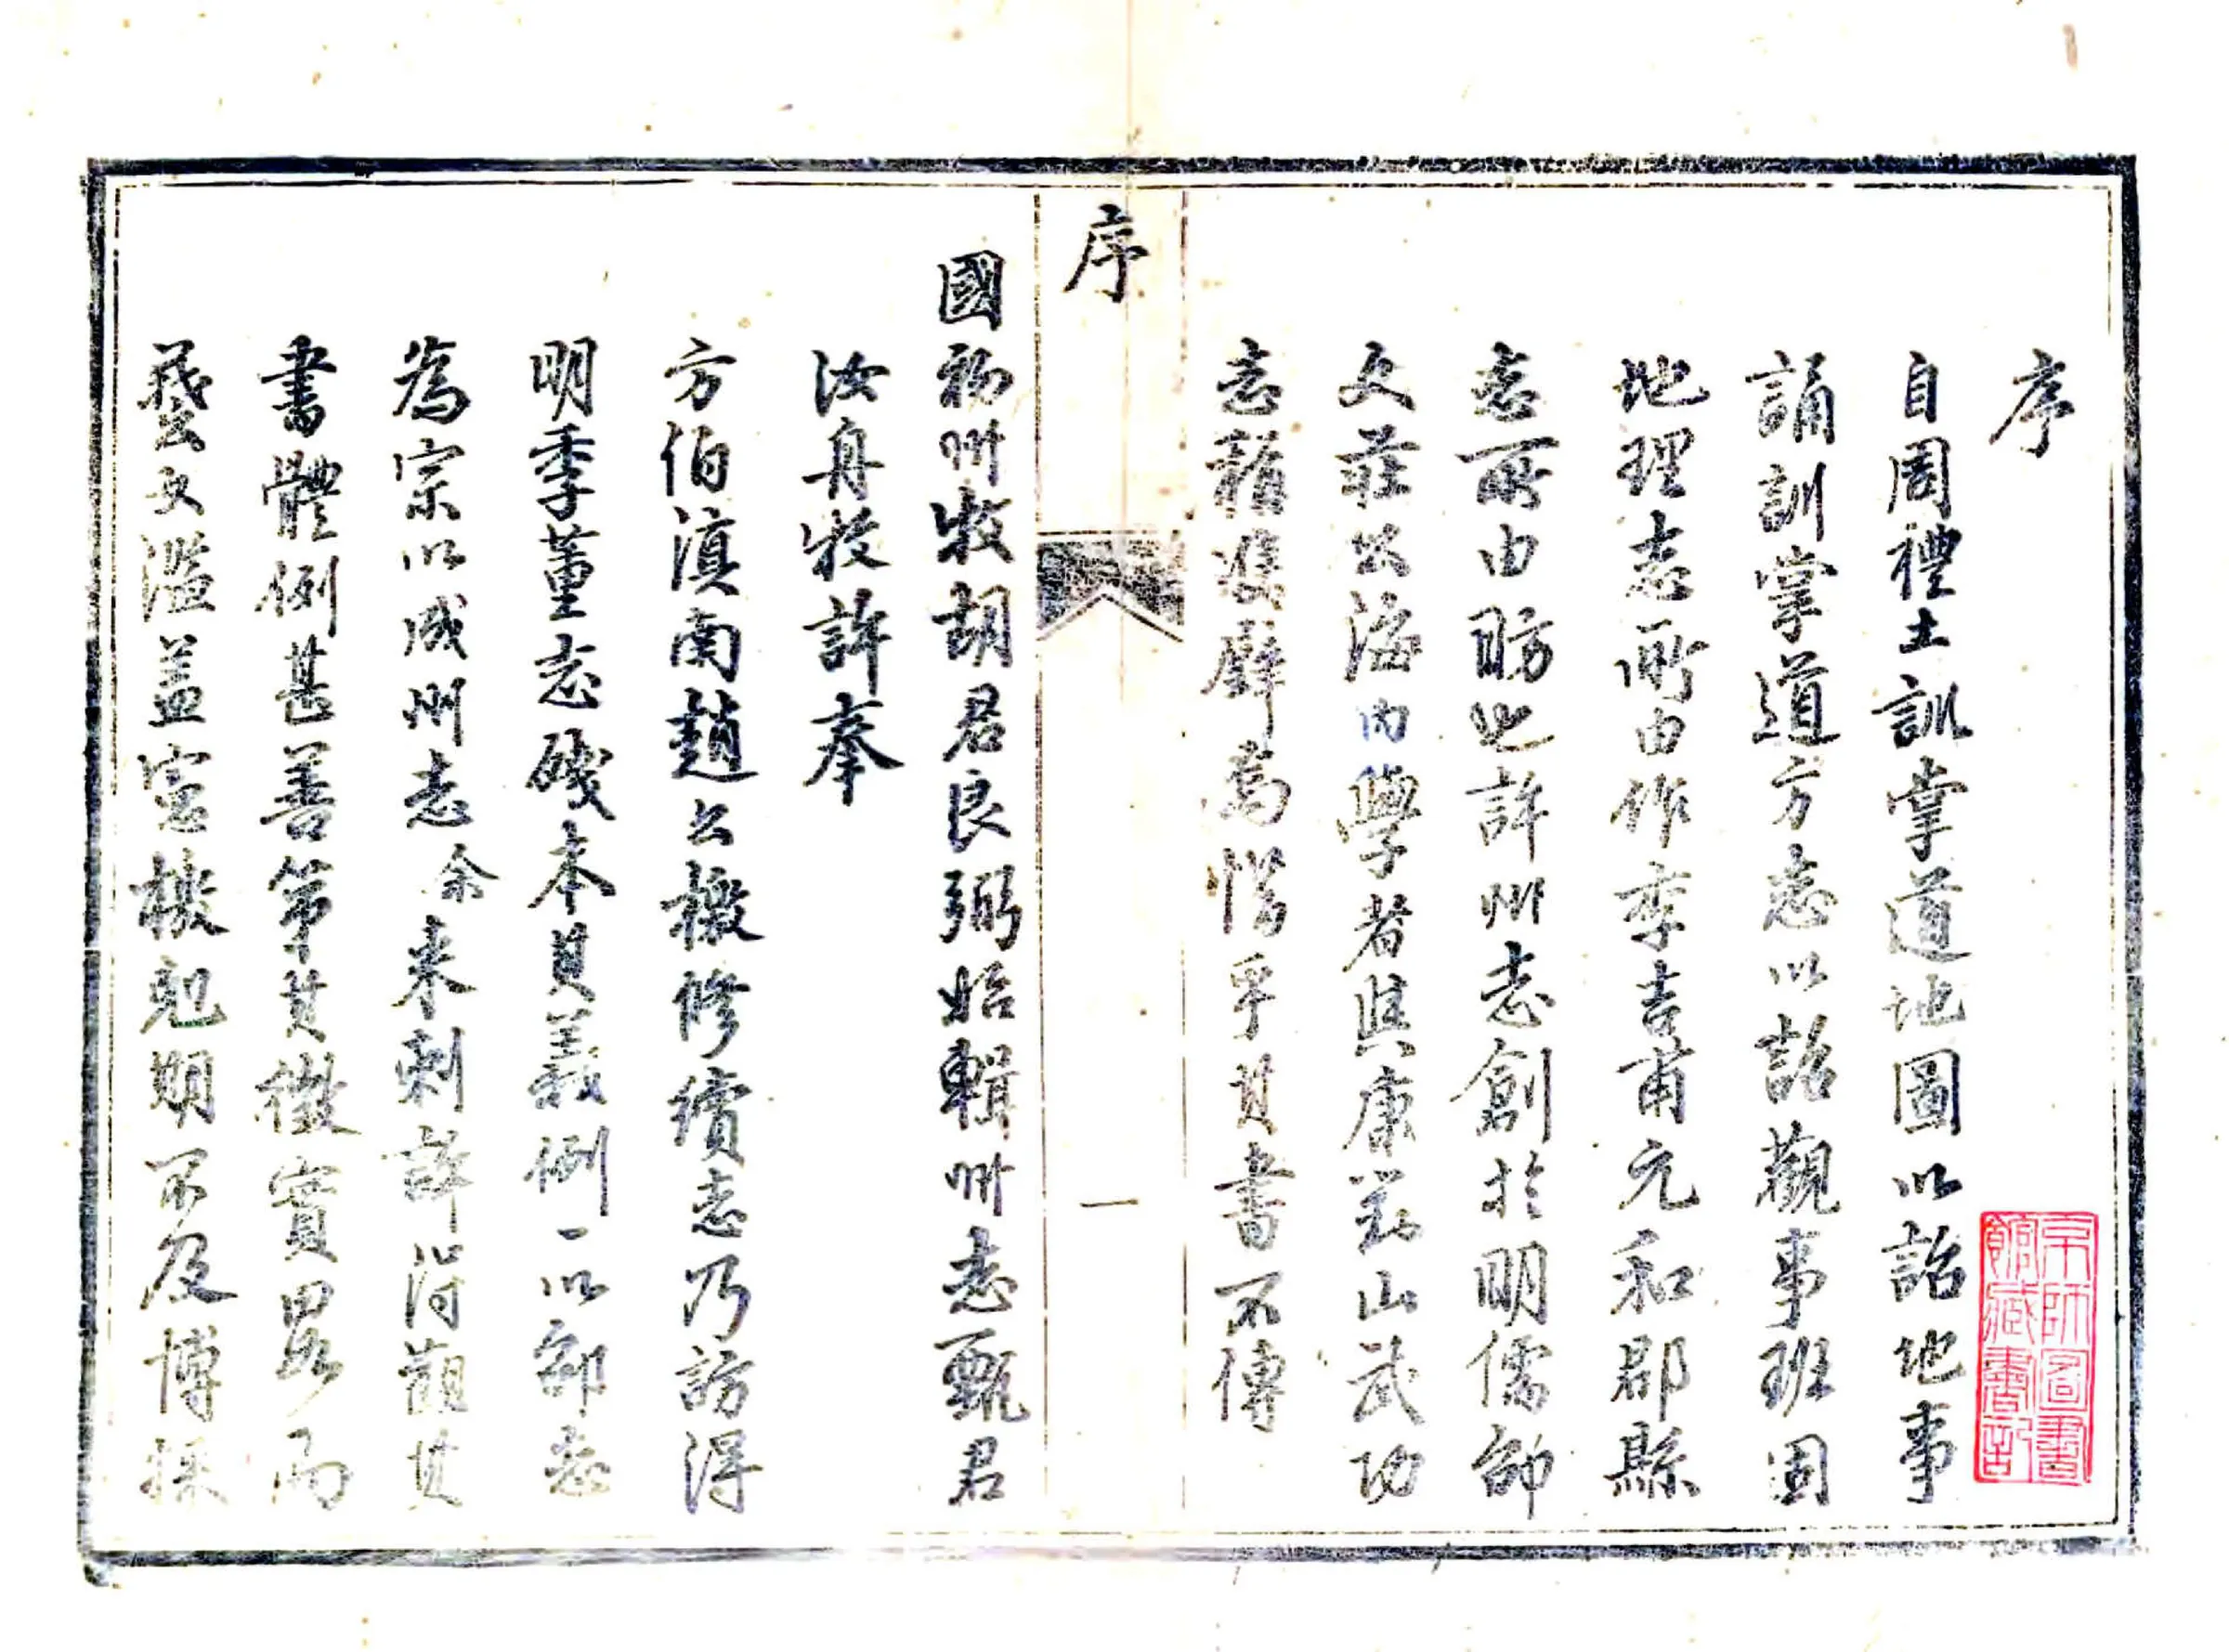 序
自周禮土訓掌道地圖以詔地事
誦訓掌道方志以詔觀事班固
地理志所由作李吉甫元和郡縣
志所由昉也許州志創於明儒邵
文莊公海內學者與康對山武功
志稱雙璧焉惜乎其書不傳
序
一
國初州牧胡君良弼始輯州志甄君
汝舟牧許奉
方伯滇南趙公檄修續志乃訪得
明季董志殘本其義例一以邵志
為宗以成州志余來刺許得觀其
書體例甚善第其徵實畧而
藝文濫蓋憲檄尅期不及博採
京師圖書
館藏書記